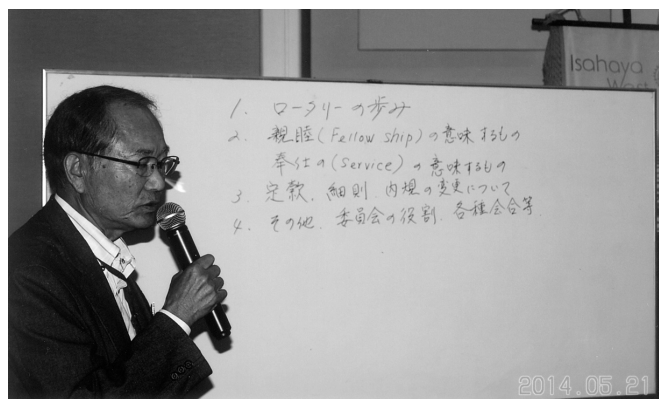 Isahaya
West
1. ロータリーの歩み
2. 親睦(Fellow ship)の意味するもの
奉仕の(Service)の意味するもの
3. 定款、細則、内規の変更について
4. その他、委員会の役割、各種会合等.
2014.05.21